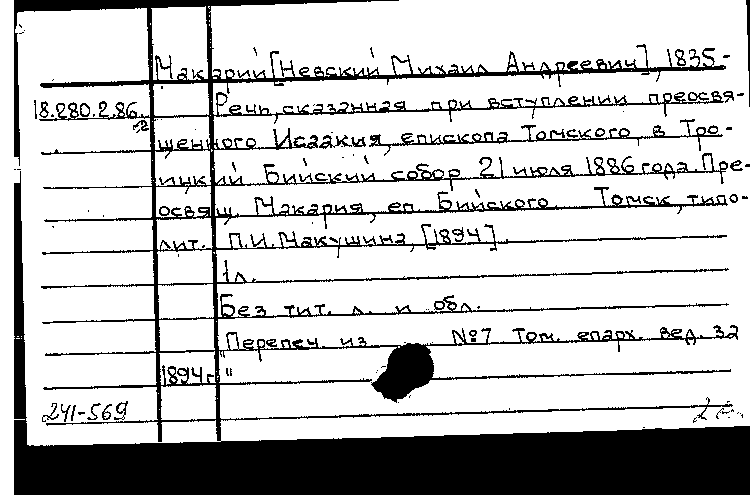 Макарий [Невский, Михаил Андреевич], 1835-
18.280.2.86. Речь, сказанная при вступлении преосвя-
щенного Исаакия, епископа Томского, в Тро-
ицкий Бийский собор 21 июля 1886 года. Пре-
освящ. Макария, еп. Бийского. Томск, типо-
лит. П.И. Макушина, [1894].
1 л.
Без тит. л. и обл.
"Перепеч. из №7 Том. епарх. вед. за
1894 г."
241-569